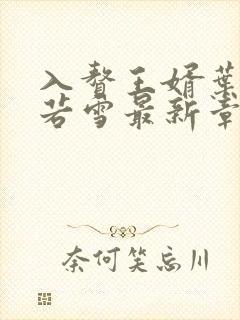 入赘王婿葉
若雪最新章
奈何笑忘川